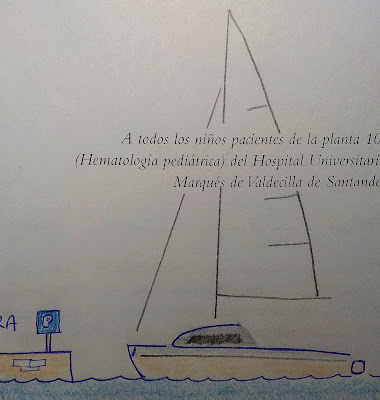 A todos los niños pacientes de la planta 10
(Hematología pediátrica) del Hospital Universitari
Marqués de Valdecilla de Santande
RA
P